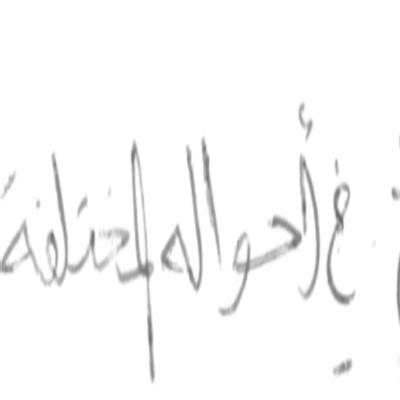 في أحواله المختلفة